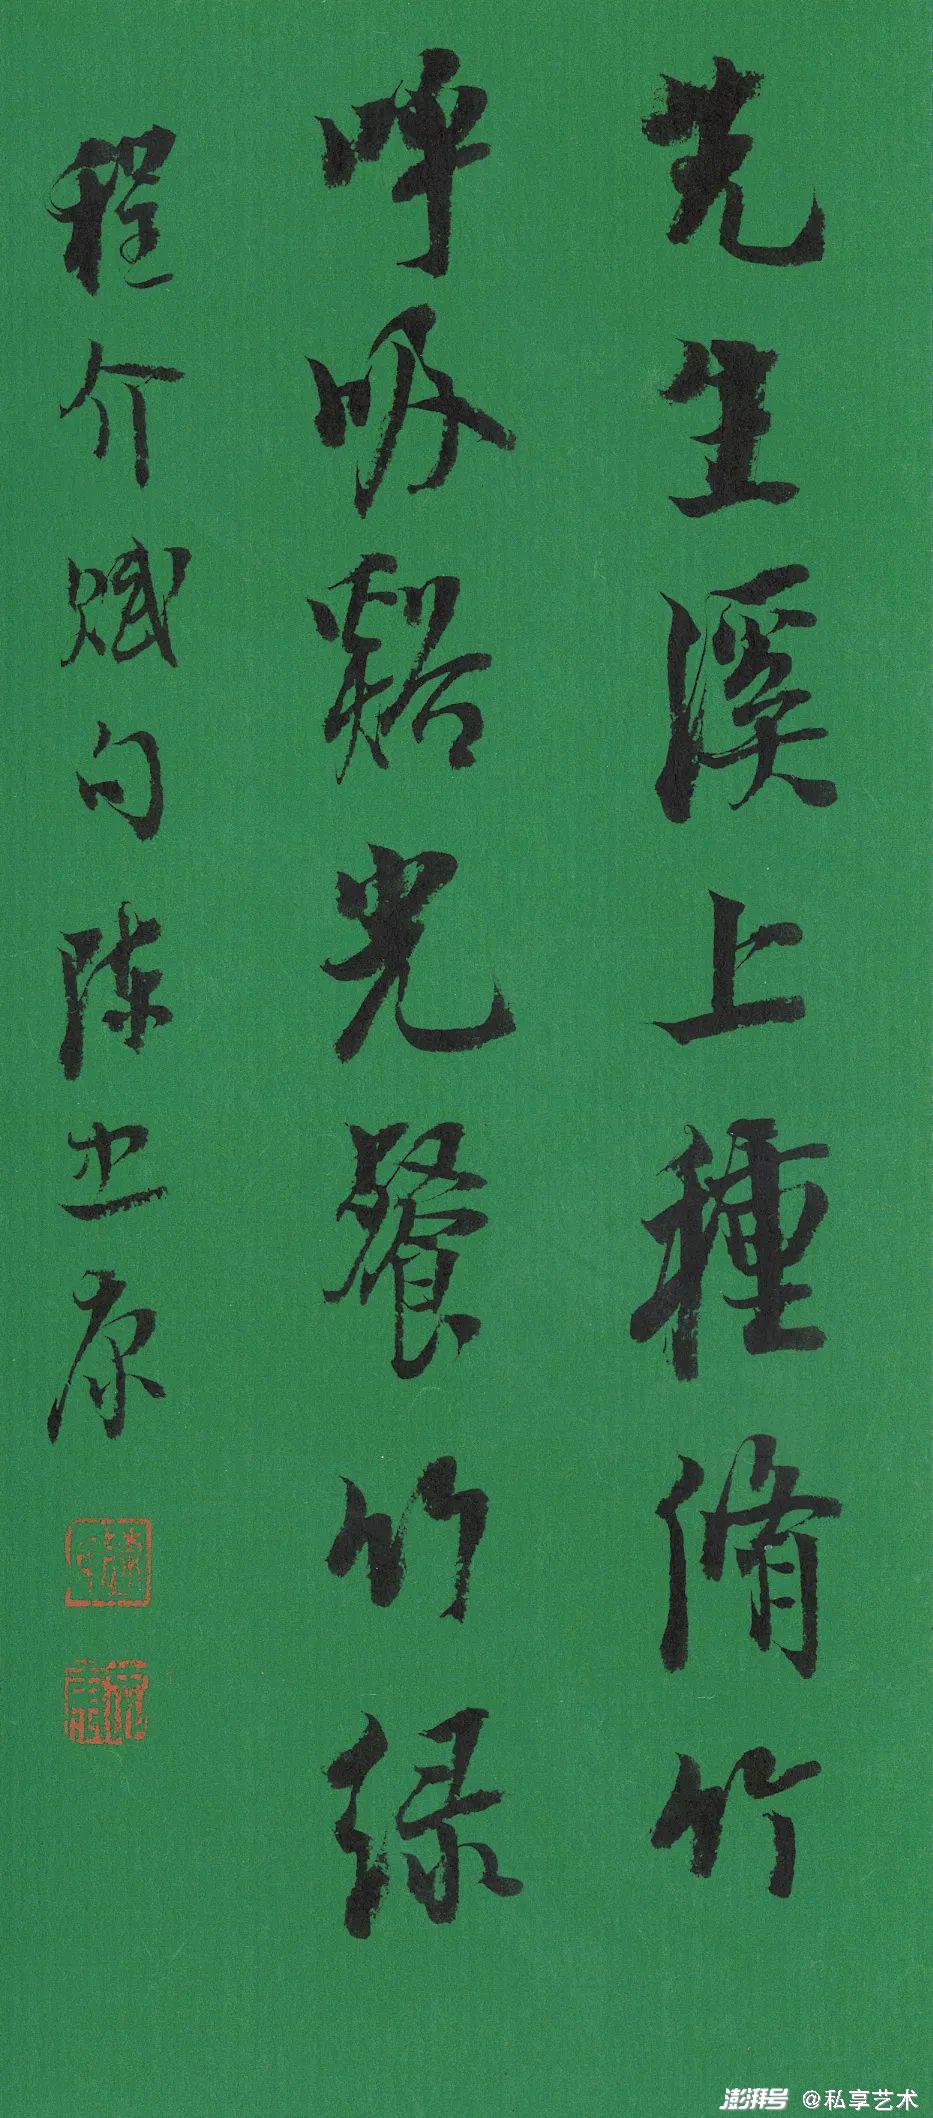 先生溪上種脩竹
呼吸谿光餐竹緑
程介賦句陳忠康
澎湃号 @私享艺术